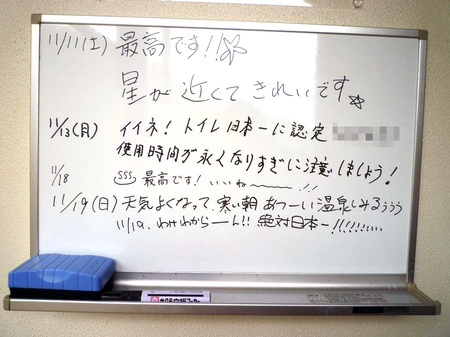 11/11(土) 最高です!!
星が近くてきれいです
11/13(月) イイネ！トイレ日本一に認定
使用時間が永くなりすぎに注意しましょう！
11/18 最高です！いいね〜〜!!
11/19(日) 天気よくなって、寒い朝 あつーい温泉しみるぅぅぅ
11/19. わけわからーん!! 絶対日本一!!!!!!...